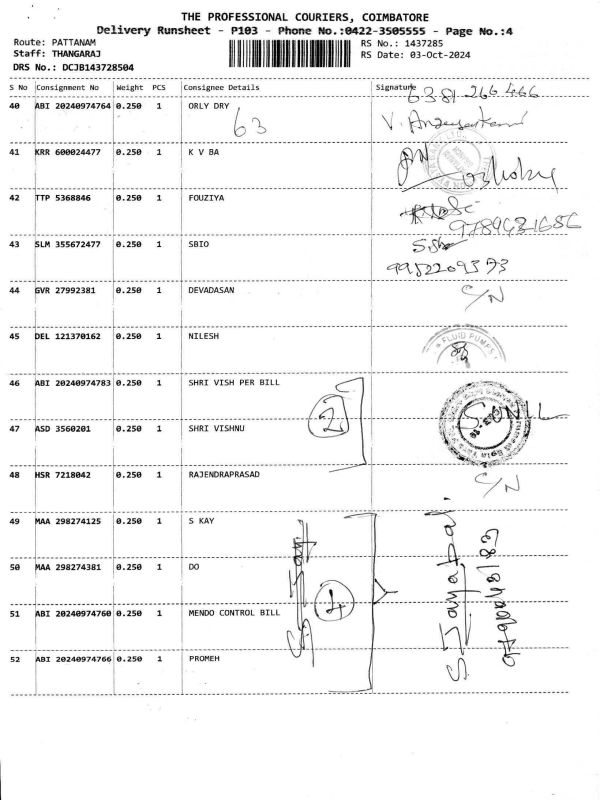 THE PROFESSIONAL COURIERS, COIMBATORE
Delivery Runsheet - P103 - Phone No.:0422-3505555 - Page No.:4
Route: PATTANAM RS No.: 1437285
Staff: THANGARAJ RS Date: 03-Oct-2024
DRS No.: DCJB143728504
S No Consignment No Weight PCS Consignee Details Signature
6381 266 466
40 ABI 20240974764 0.250 1 ORLY DRY
63
41 KRR 600024477 0.250 1 K V BA
42 TTP 5368846 0.250 1 FOUZIYA
43 SLM 355672477 0.250 1 SBIO
9952209373
44 GVR 27992381 0.250 1 DEVADASAN C/N
45 DEL 121370162 0.250 1 NILESH FLUID PUMPS
46 ABI 20240974783 0.250 1 SHRI VISH PER BILL
2 SUNIL
47 ASD 3560201 0.250 1 SHRI VISHNU
48 HSR 7218042 0.250 1 RAJENDRAPRASAD C/N
49 MAA 298274125 0.250 1 S KAY
50 MAA 298274381 0.250 1 DO
4 S. Jayapal.
51 ABI 20240974760 0.250 1 MENDO CONTROL BILL
52 ABI 20240974766 0.250 1 PROMEH